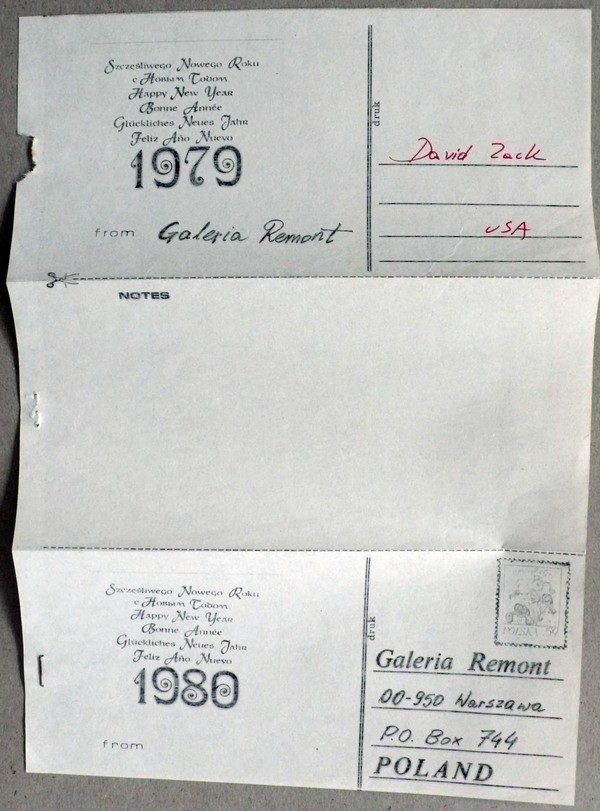 Szczęśliwego Nowego Roku
с Новым Годом
Happy New Year
Bonne Année
Glückliches Neues Jahr
Feliz Año Nuevo
1979
from Galeria Remont
druk
David Zack
USA
NOTES
Szczęśliwego Nowego Roku
с Новым Годом
Happy New Year
Bonne Année
Glückliches Neues Jahr
Feliz Año Nuevo
1980
from
druk
POLSKA
Galeria Remont
00-950 Warszawa
P.O. Box 744
POLAND